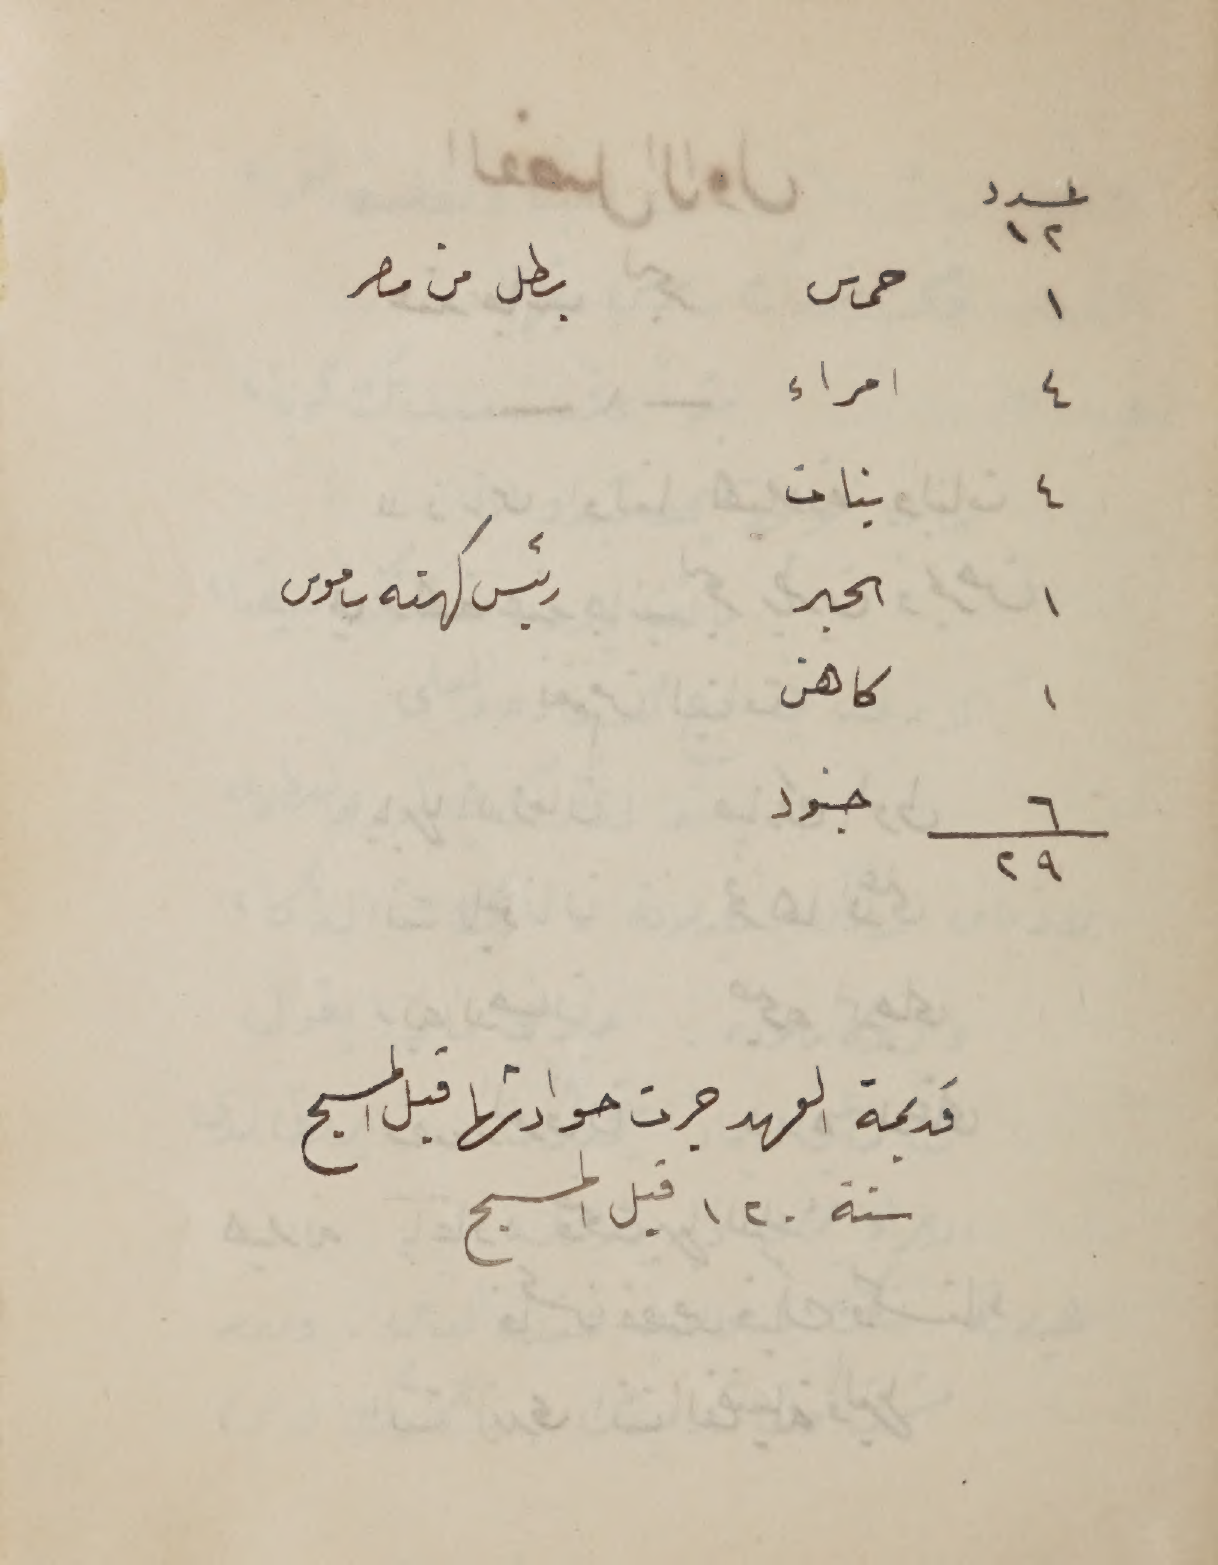 عدد
١٢
١ حمس بطل من مصر
٤ امراء
٤ بنات
١ الحبر رئيس كهنه راموس
١ كاهن
٦ جنود
٢٩
قديمة العهد جرت حوادثها قبل المسيح
سنة ١٢٠ قبل المسيح